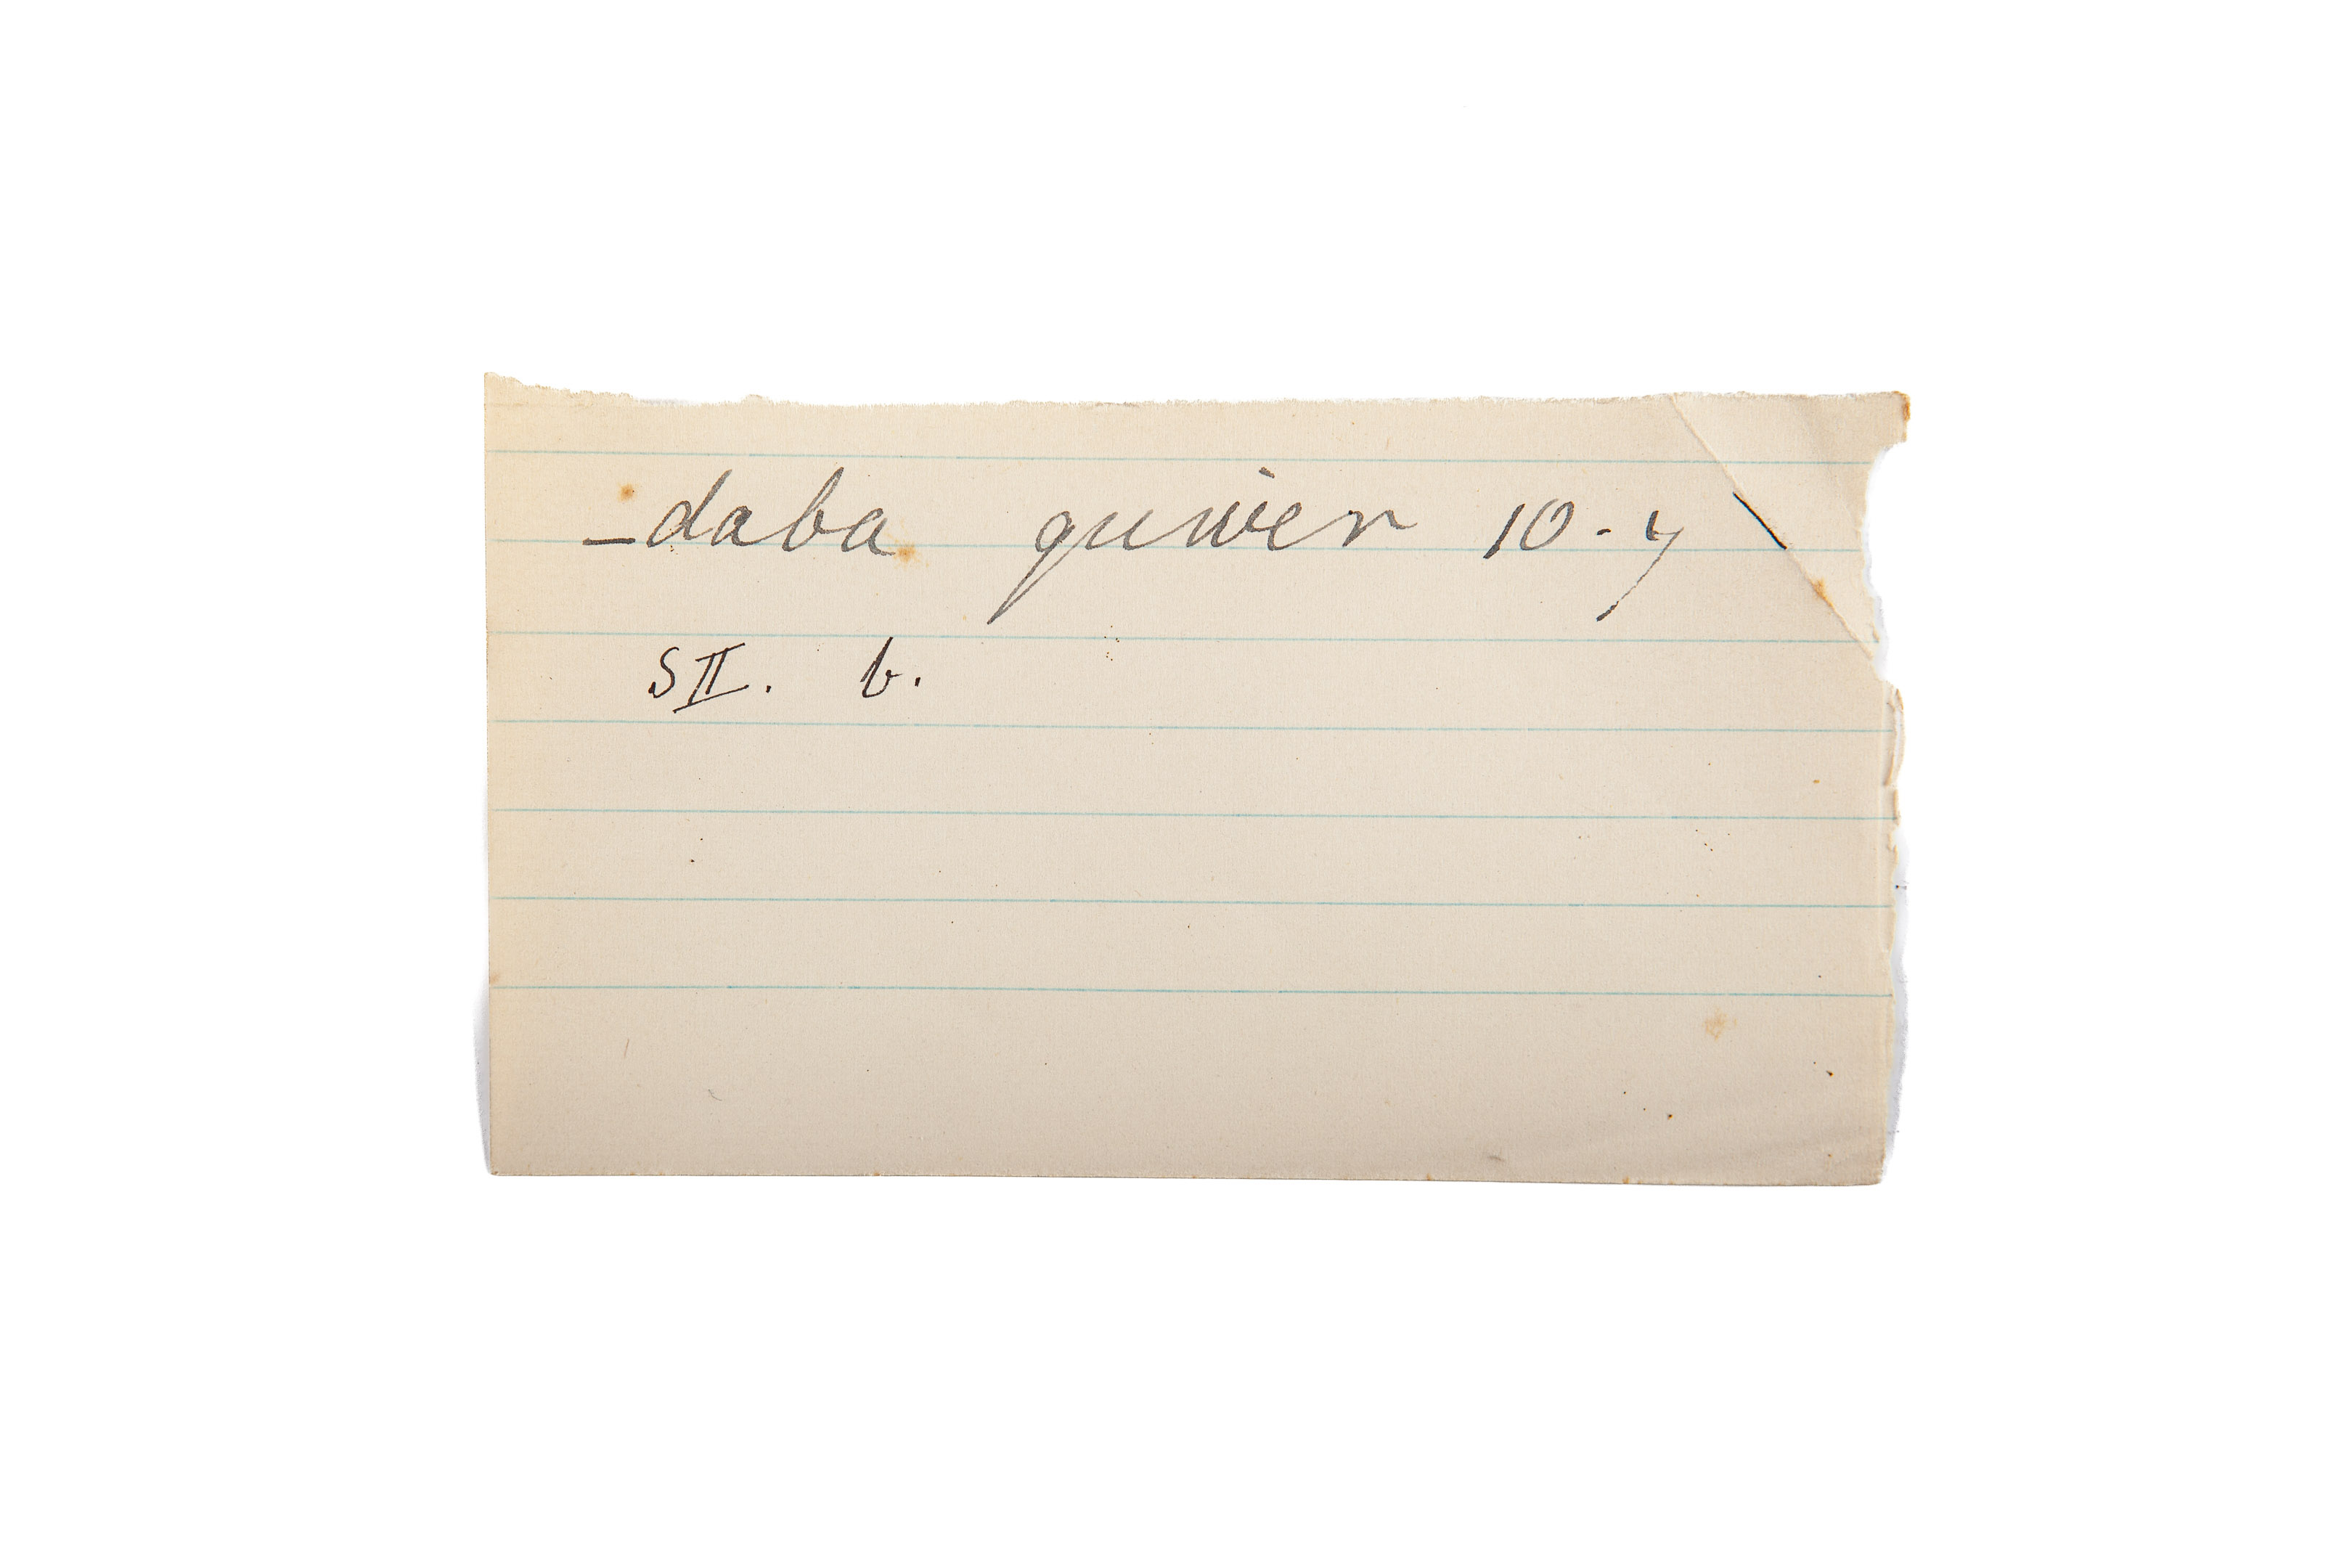 –daba guwer 10-y
SII. b.